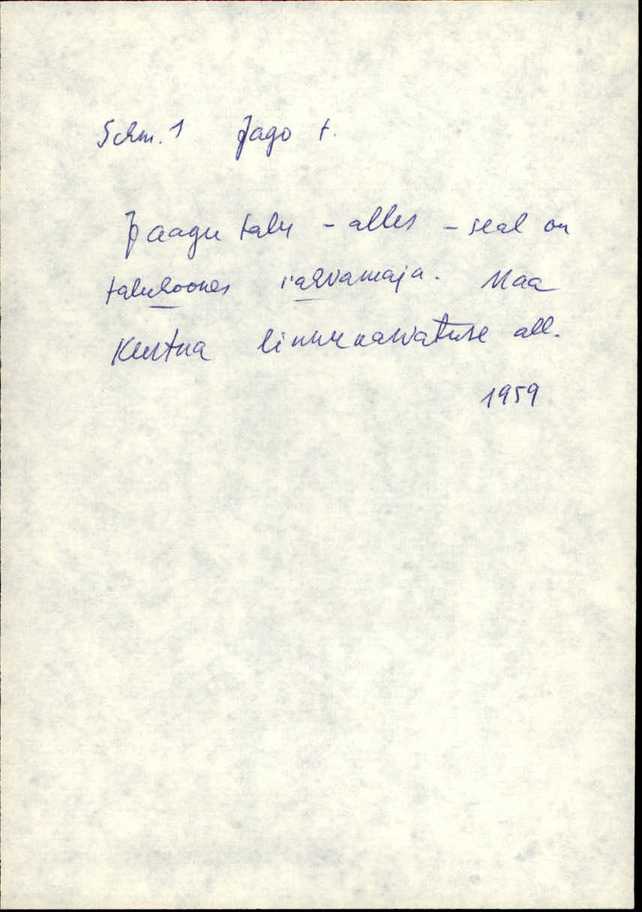 Schm. 1 Jago t.
Jaagu talu - alles - seal on
taluhoones rahvamaja. Maa
Kurtna linnukasvatuse all.
1959